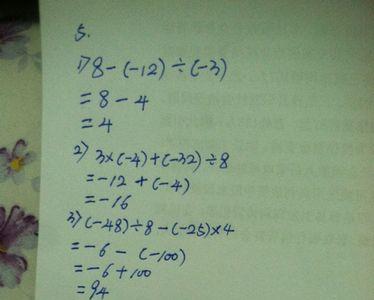 5.
1) 8-(-12)÷(-3)
=8-4
=4
2) 3×(-4)+(-32)÷8
=-12+(-4)
=-16
3) (-48)÷8-(-25)×4
=-6-(-100)
=-6+100
=94